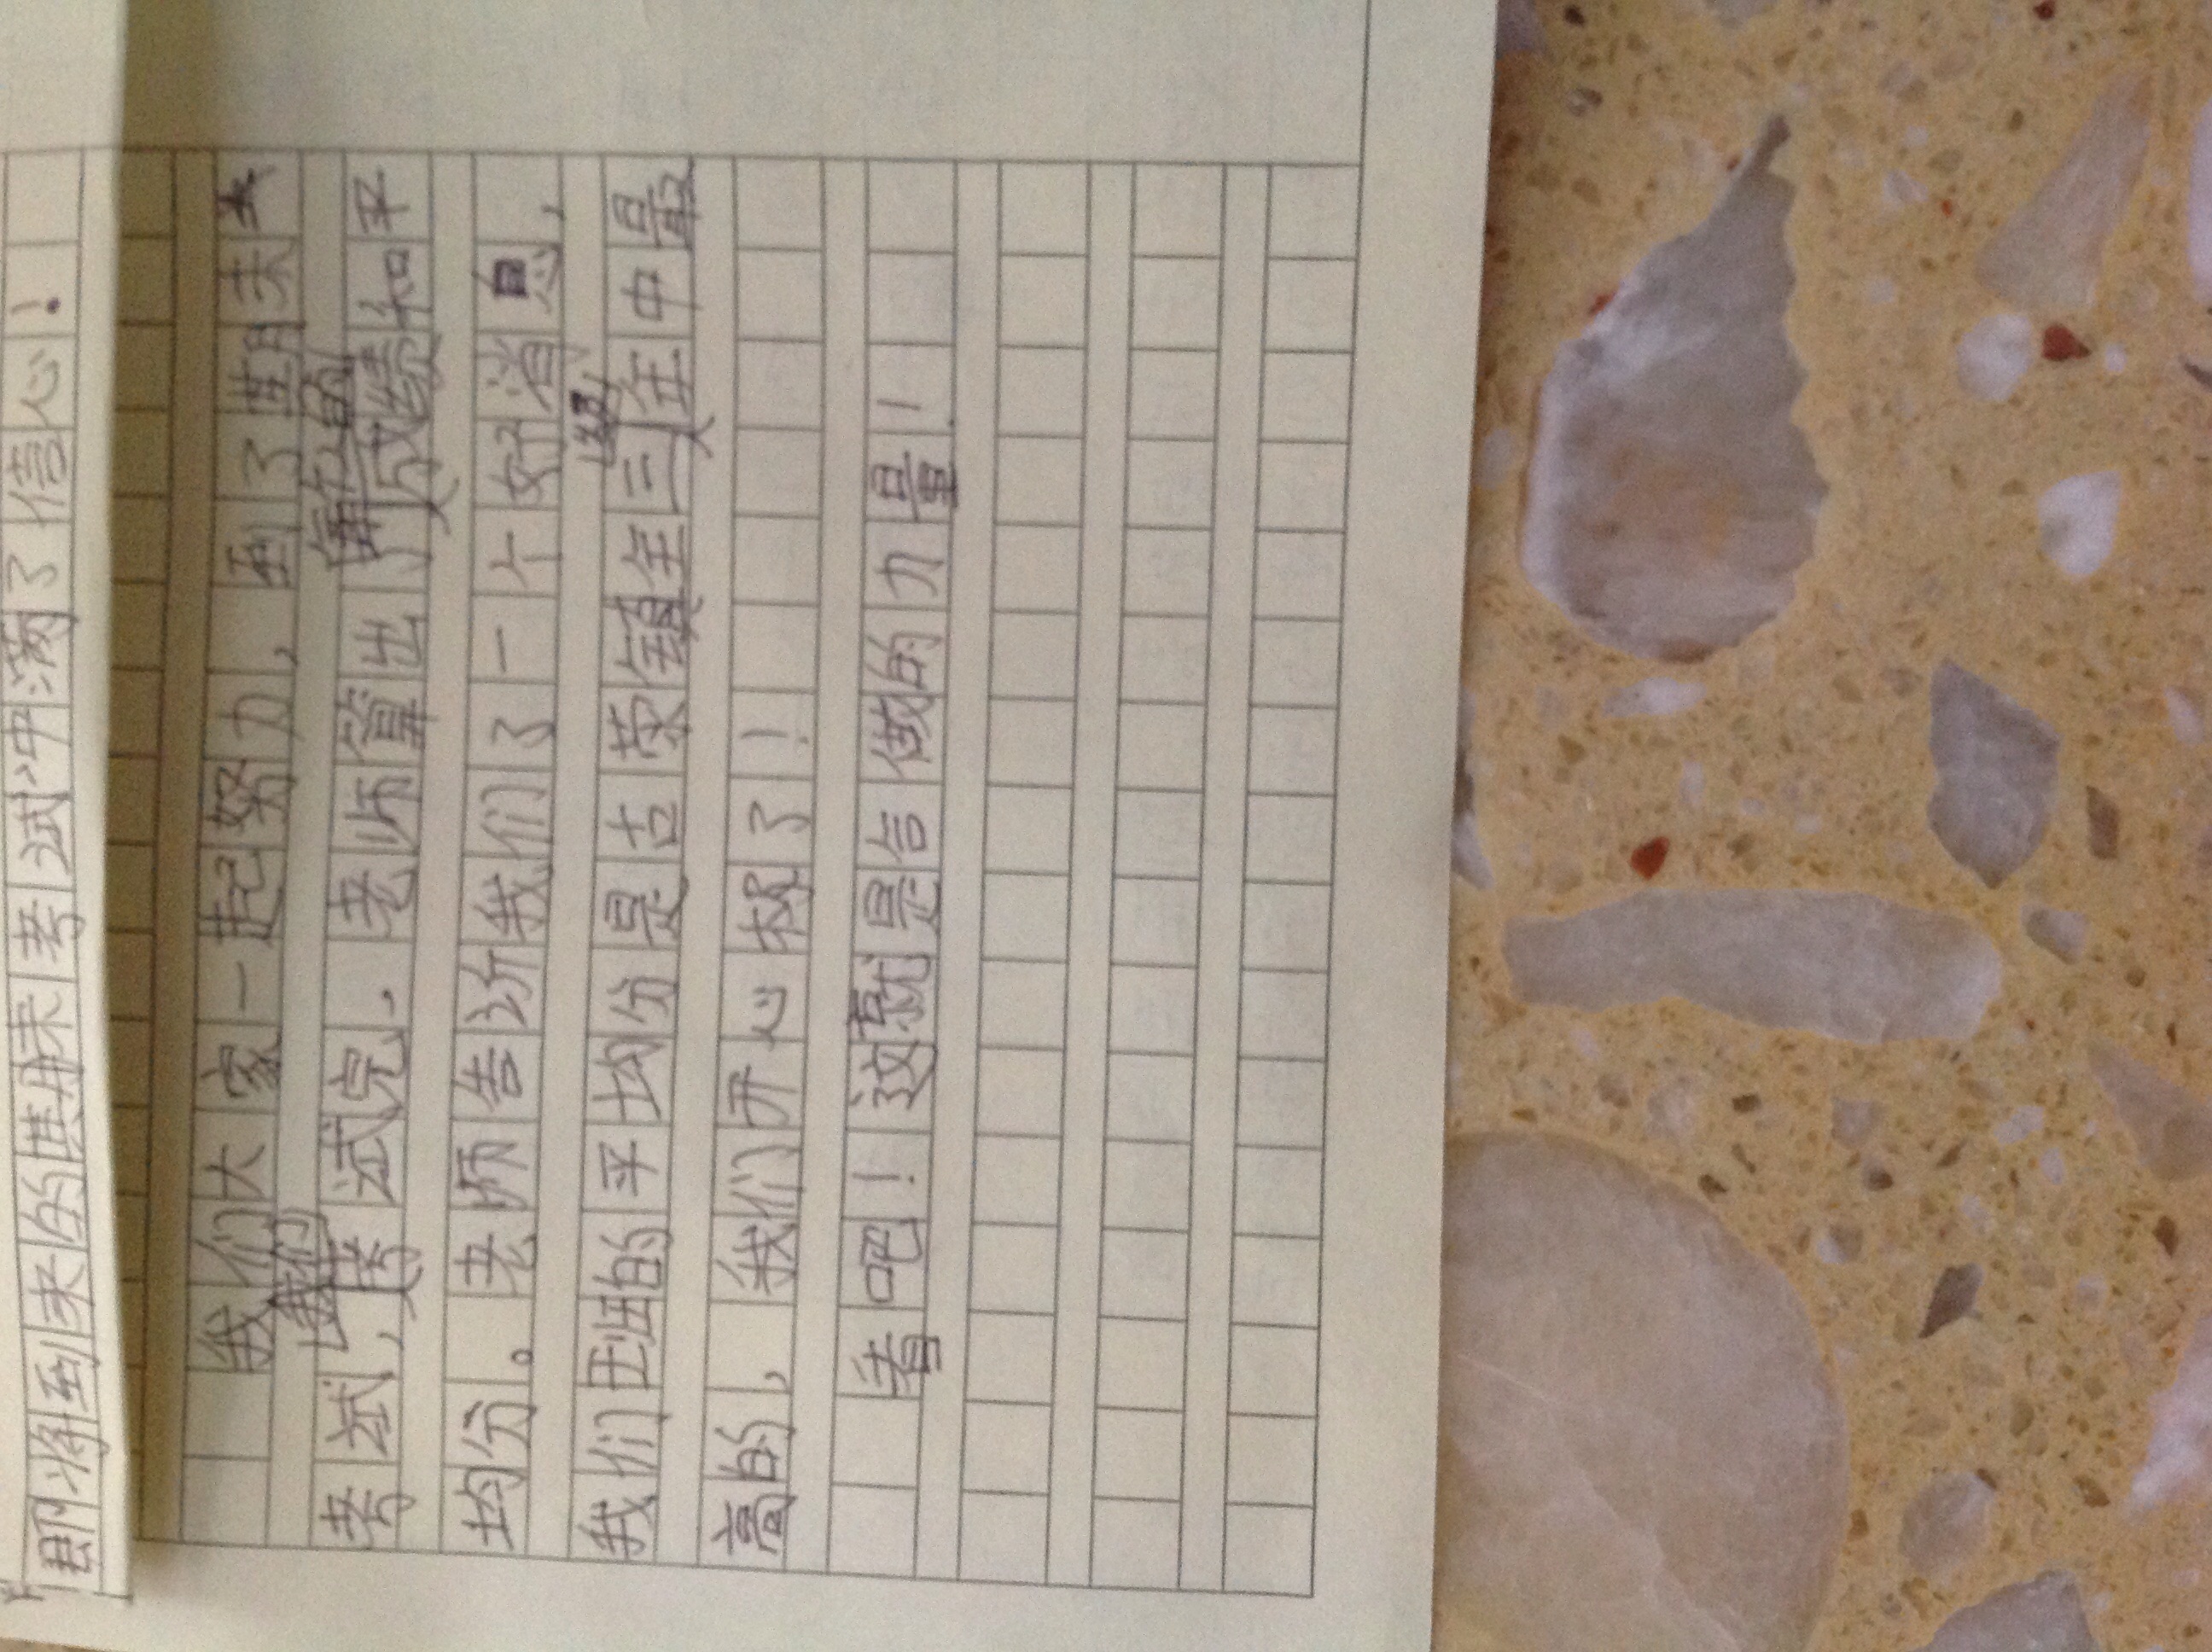 即将到来的期末考试冲满了信心!
我们大家一起努力,到了期末
考试,我们考试完,老师算出了每个人的成绩和平
均分。老师告访我们了一个好消息,
我们班的平均分是古荣镇全三年级中最
高的,我们开心极了!
看吧!这就是合做的力量!